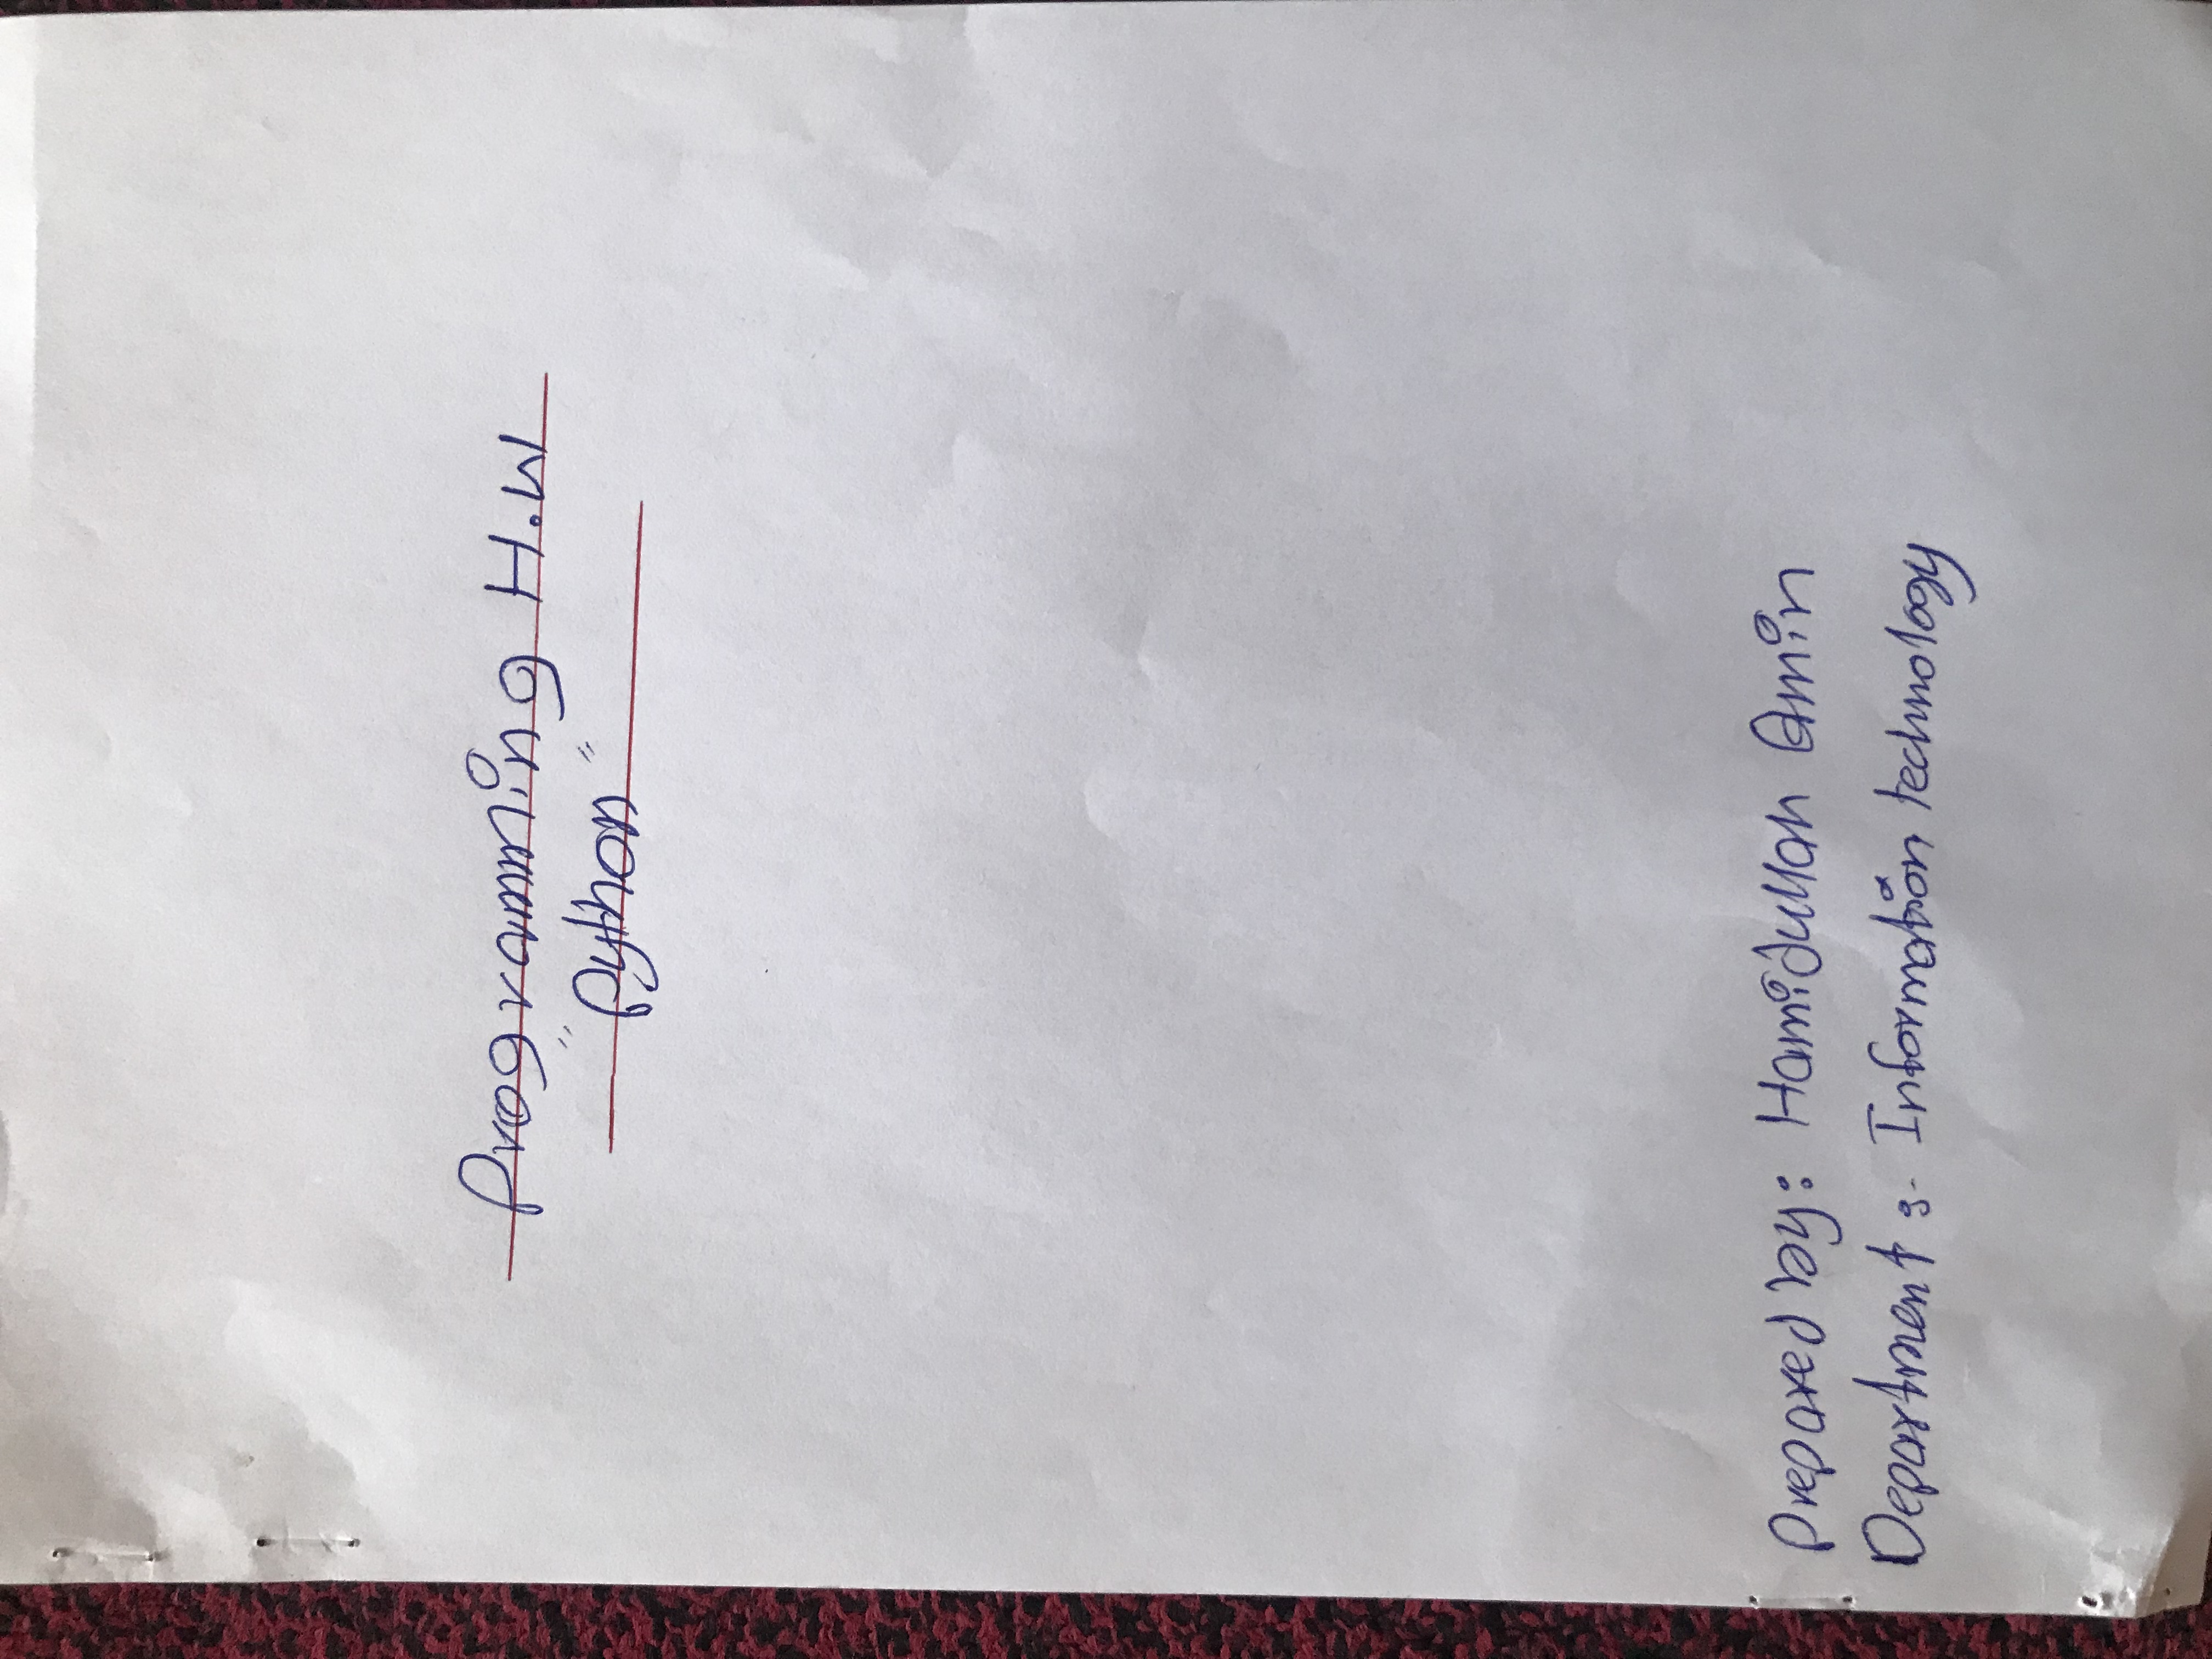 Programming H.W
"Python"
Prepared by: Hamidullah Amin
Department :- Information technology